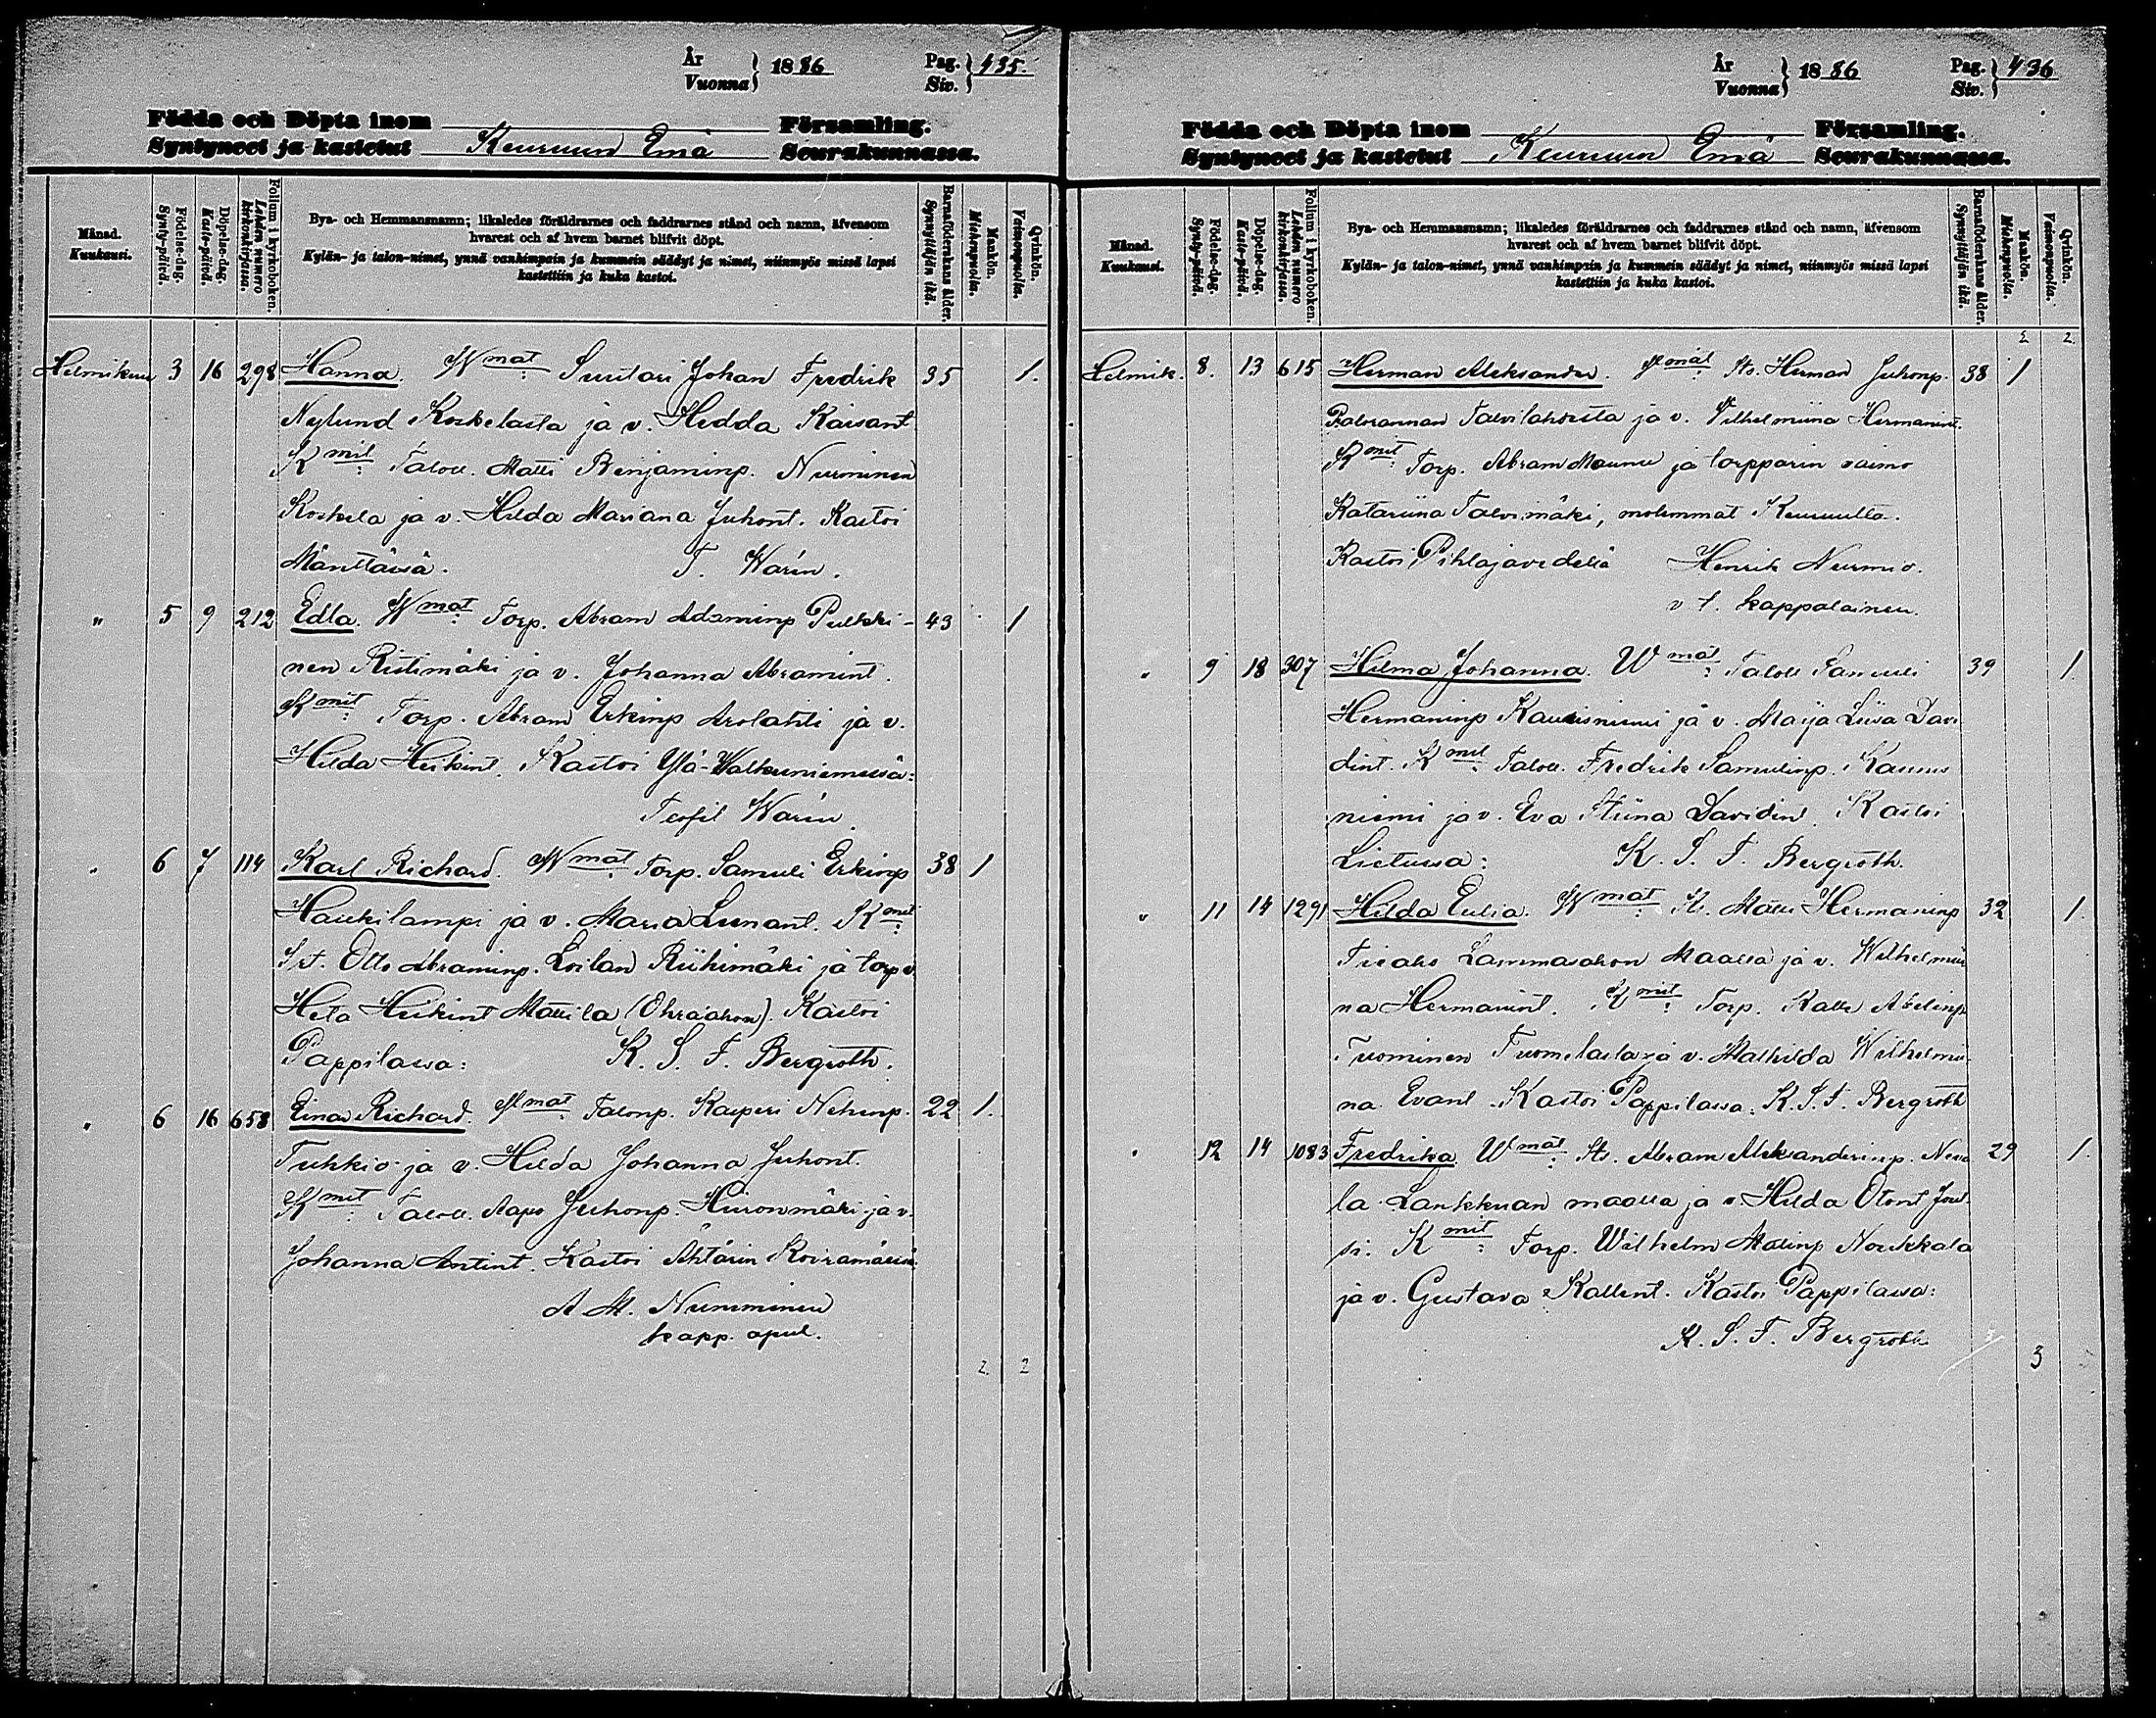 År
Vuonna } 1886 Pag.
Siv. } 435.
Födda och Döpta inom Församling.
Syntyneet ja kastetut Keuruun Emä Seurakunnassa.
Månad.
Kuukausi.
Födelse-dag.
Synty-päivä.
Döpelse-dag.
Kaste-päivä.
Folium i kyrkoboken.
Lehden numero
kirkonkirjassa.
Bya- och Hemmansnamn; likaledes föräldrarnes och faddrarnes stånd och namn, äfvensom
hvarest och af hvem barnet blifvit döpt.
Kylän- ja talon-nimet, ynnä vanhimpain ja kummein säädyt ja nimet, niinmyös missä lapsi
kastettiin ja kuka kastoi.
Barnaföderskans ålder.
Synnyttäjän ikä.
Mankön.
Miehenpuolia.
Qvinkön.
Vaimonpuolia.
Helmikuu 3 16 298 Hanna. Wmat: Suutari Johan Fredrik 35 1.
Nylund Koskelasta ja v. Hedda Kaisant
Kmit: Taloll. Matti Benjaminp. Nurminen
Koskela ja v. Hilda Mariana Juhont. Kastoi
Mänttässä. T. Warén.
" 5 9 212 Edla. Wmat: Torp. Abram Adaminp Pulkki- 43 1
nen Ristimäki ja v. Johanna Abramint.
Kmit: Torp. Abram Erkinp Arolahti ja v.
Hilda Heikint. Kastoi Ylä-Walkeuniemessä:
Teofil Warén
" 6 7 114 Karl Richard. Wmat: Torp. Samuli Erkinp 38 1
Haukilampi ja v. Maria Leenant. Kmit:
Otto Abraminp. Loilan Riihimäki ja torp v
Heta Heikint Mattila (Ohra'ahon). Kastoi
Pappilassa: K. S. F. Bergroth.
" 6 16 658 Einar Richard. Wmat: Talonp. Kasperi Nehenp. 22 1.
Tuhkio ja v. Hilda Johanna Juhont.
Kmit: Taloll. Aapo Juhonp. Hiironmäki ja v.
Johanna Antint. Kastoi Ähtärin
A. M. Nurminen
kapp. apul.
2 2
År
Vuonna } 1886 Pag.
Siv. } 436
Födda och Döpta inom Församling.
Syntyneet ja kastetut Keuruun Emä Seurakunnassa.
Månad.
Kuukausi.
Födelse-dag.
Synty-päivä.
Döpelse-dag.
Kaste-päivä.
Folium i kyrkoboken.
Lehden numero
kirkonkirjassa.
Bya- och Hemmansnamn; likaledes föräldrarnes och faddrarnes stånd och namn, äfvensom
hvarest och af hvem barnet blifvit döpt.
Kylän- ja talon-nimet, ynnä vanhimpain ja kummein säädyt ja nimet, niinmyös missä lapsi
kastettiin ja kuka kastoi.
Barnaföderskans ålder.
Synnyttäjän ikä.
Mankön.
Miehenpuolia.
Qvinkön.
Vaimonpuolia.
2 2
Helmik. 8. 13 615 Herman Aleksander. Wmat: Its. Herman Juhonp. 38 1
Palorannan ja v. Vilhelmiina Hermanint.
Kmit: Torp. Abram Maunu ja torpparin vaimo
Katariina Talvimäki, molemmat Keuruulta.
Kastoi Pihlajavedellä Henrik Nurmio.
v. t. kappalainen.
" 9 18 307 Hilma Johanna. Wmat: Taloll Samuli 39 1.
Hermaninp Kaunisniemi ja v. Maija Liisa Davi
dint. Kmit: Taloll. Fredrik Samulinp. Kaunis
niemi ja v. Eva Stiina Davidint. Kastoi
Lietussa: K. S. F. Bergroth.
" 11 14 1291 Hilda Eulia. Wmat: It. Matti Hermaninp 32 1.
Lammasahon Maalla ja v. Wilhelmii
na Hermanint. Kmit: Torp. Kalle Abelinp
Tuominen Tuomelasta ja v. Mathilda Wilhelmii-
na Evant. Kastoi Pappilassa: K. S. F. Bergroth
" 12 14 1083 Fredrika. Wmat: Its. Abram Aleksanterinp. Neva 29 1.
la Lankkuan maalla ja v. Hilda Otont Jout
si. Kmit: Torp. Wilhelm Matinp Noukkala
ja v. Gustava Kallent. Kastoi Pappilassa:
K. S. F. Bergroth
3